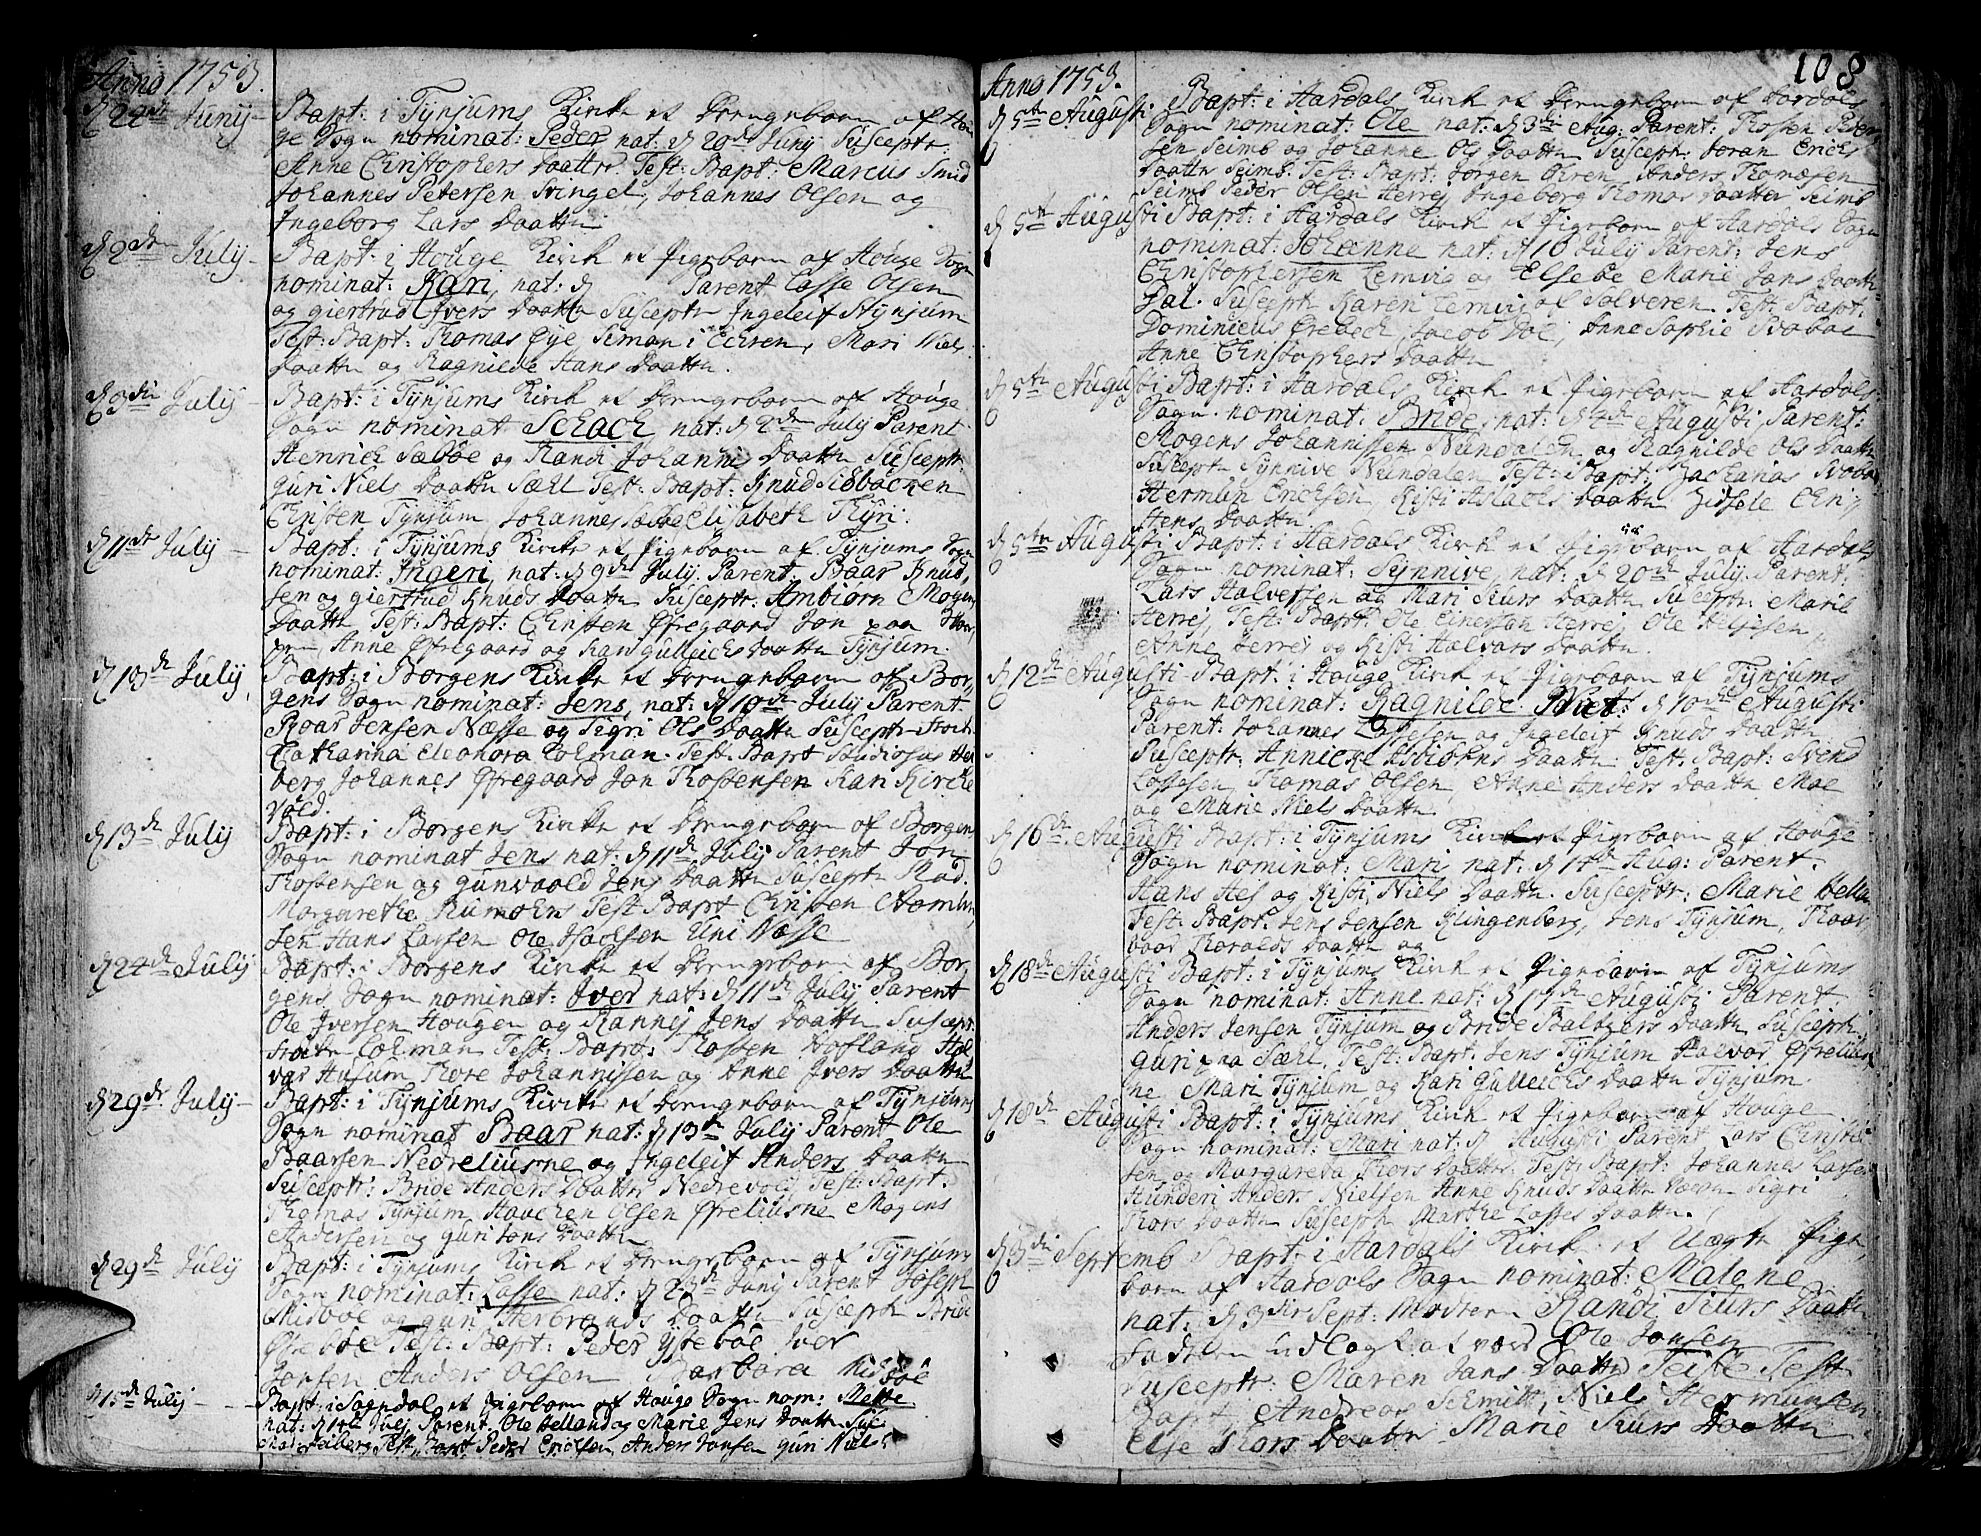 Anno 1753.
d 24de Junij - Bapt: i Tÿnjums Kirke et Drengebarn af Hou
ge Sogn nominat: Peder nat: d 20de Junij Susceptr:
Anne Christophers Daatter. Test: Bapt: Marcus Smid
Johannes Petersen Svingel, Johannes Olsen og
Ingeborg Lars Daatter
d 2den Julij - Bapt: i Houge Kirk et Pigebarn af Houge Sogn
nominat: Kari, nat: d Parent Lasse Olsen
og giertrud Ivers Daatter Susceptr Ingeleif Nÿnjum
Test: Bapt: Thomas Øÿe Simon i Echren, Mari Niels
Daatter og Ragnilde Hans Daatter.
d 3die Julij - Bapt: i Tÿnjums Kirk et Drengebarn af Houge
Sogn nominat Schach nat: d 2den Julij Parent
Henrich Sæbøe og Randi Johannis Daatter Susceptr
guri Niels Daatter Sæhl Test: Bapt: Knud
Christen Tÿnjum, Johannes Elisabeth Thÿri.
d 11de Julij - Bapt: i Tÿnjums Kirke et Pigebarn af Tÿnjums Sogn
nominat: Ingeri, nat: d 9de Julij. Parent. Baar Knud,
sen og giertrud Knuds Daatter Susceptr: Ambiørn Mogens
Daatter Test: Bapt: Christen Øfregaard Jon paa
Anne Øfregaard og Kari Gulleichs Daatter Tÿnjum.
d 13de Julij, Bapt: i Borgens Kirke et Drengebarn af Bor,
gens Sogn nominat: Jens, nat: d 10de Julij Parent
Roar Jensen Næsse og Sigri Ols Daatter Susceptr
Catharina Eleonora Colman. Test: Bapt Studiosus
berg Johannes Øfregaard Jon Thostensen Kari Kirche
vold.
d 13de Julij Bapt: i Borgens Kirke et Drengebarn af Borgens
Sogn nominat Jens nat: d 11de Julij Parent Jon
Thostensen og gunvaold Jens Daatter Susceptr Mad.
Margarethe Rumohrs Test Bapt Christen
sen Hans Larsen Ole Isachsen Uni Næsse
d 24de Julij Bapt: i Borgens Kirke et Drengebarn af Bor,
gens Sogn nominat: Iver nat: d 11de Julij Parent
Ole Iversen Hougen og Rannej Jens Daatter Suscept:
Colman Test: Bapt: Thosten Hofland Hal
var Husum Thore Johannissen og Anne Ivers Daatter
d 29de Julij - Bapt: i Tÿnjums Kirk et Drengebarn af Tÿnjums
Sogn nominat Baar nat: d 13de Julij Parent Ole
Baarsen Nedreliusne og Ingeleif Anders Daatter
Susceptr: Bride Anders Daatter Nedrevold Test: Bapt:
Thomas Tÿnjum Haachen Olsen Øfreliusne Mogens
Andersen og guri Jons Daatter
d 29de Julij Bapt: i Tÿnjums Kirk et Drengebarn af Tÿnjums
Sogn nominat: Lasse nat: d 23de Junij Parent Joseph
Midbøe og guri Herbrands Daatter Susceptr Bride
Test: Bapt: Peder Ÿstebøe Iver
Jonsen Anders Olsen Barbara Midbøe
d 15de Julij - - - Bapt: i Sogndal et Pigebarn af Houge Sogn nom: Mette
nat: d 14de Julij Parent Ole Helland og Marie Jens Daatter
Test: Bapt Peder Erichsen, Anders Jonsen guri Niels
108
Anno 1753.
d 5te Augusti Bapt: i Aardals Kirk et Drengebarn af Aardals
Sogn nominat: Ole nat: d 3die Aug: Parent: Thosten Peder
sen Seimb og Johanne Ols Daatter Susceptr: Joran Erichs
Daatter Seimb. Test: Bapt: Jorgen Ehren, Anders Thomæsen
Seimb Peder Olsen Herrej Ingeborg Thomas Daatter Seimb
d 5te Augusti Bapt: i Aardals Kirk et Pigebarn af Aardals Sogn
nominat: Johanne nat: d 10 Julij Parent: Jens
Christophersen Lemvig og Elsebe Marie Jans Daatter
Dal. Susceptr Karen Lemvig af Solveren. Test: Bapt:
Dominicus Ørebech, Jacob Dol, Anne Sophie
Anne Christophers Daatter
d 5te Augusti Bapt: i Aardals Kirk et Pigebarn af Aardals
Sogn. nominat. Bride, nat: d 2de Augusti Parent:
Mogens Johannissen Nundalen og Ragnilde Ols Daatter
Susceptr Sÿnnive Nundalen Test: Bapt: Zacharias
Hermun Erichsen, Kisti Aslachs Daatter Zidsele Chri
stens Daatter.
d 5te Augusti Bapt: i Aardals Kirk et Pigebarn af Aardals
Sogn nominat: Sÿnnive, nat: d 20de Julij. Parent.
Lars Halversen og Mari Siurs Daatter Susceptr: Marie
Herrej, Test: Bapt: Ole Einersen Herrej, Ole Heljesen,
Anne Herrej og Kisti Halvors Daatter.
d 12de Augusti Bapt: i Houge Kirk et Pigebarn af Tÿnjums
Sogn nominat: Ragnilde Nat: d 10de Augusti
Parent: Johannes Lassesen og Ingeleif Knuds Daatter
Susceptr: Anniche Asbiørns Daatter Test: Bapt: Svend
Lassesen, Thomas Olsen, Anne Anders Daatter Moe
og Marie Niels Daatter
d 16de Augusti Bapt: i Tÿnjums Kirk et Pigebarn af Houge
Sogn nominat: Mari nat: d 14de Aug: Parent:
Hans Aes og Kisti Niels Daatter. Susceptr: Marie Hella
Test: Bapt: Jens Jensen Klingenberg, Jens Tÿnjum, Thor
Thoralds Daatter og
d 18de Augusti Bapt: i Tÿnjums Kirk et Pigebarn af Tÿnjums
Sogn nominat: Anne nat: d 17de Augusti Parent
Anders Jensen Tÿnjum og Bride Baltzers Daatter Susceptr:
guri paa Sæhl. Test: Bapt: Jens Tÿnjum Halvor Øfrelius
ne Mari Tÿnjum og Kari Gulleichs Daatter Tÿnjum.
d 18de Augusti Bapt: i Tÿnjums Kirk et Pigebarn af Houge
Sogn nominat: Mari nat: d Augusti Parent Lars Christi
sen og Margareta Thors Daatter: Test: Bapt: Johannes Larsen
Hunderi Anders Nielsen Anne Knuds Daatter Sigri
Thors Daatter Susceptr Marthe Lasses Daatter.
d 3die Septemb Bapt: i Aardals Kirk et Uægte Pige
barn af Aardals Sogn nominat: Malene
nat: d 3die Sept: Moderen Randi Siurs Daatter
Faderen udlagt at være Ole Jansen
Susceptr: Maren Jans Daatter Test
Bapt Andreas Schmitt, Niels Hermunsen
Else Thors Daatter Marie Siurs Daatter